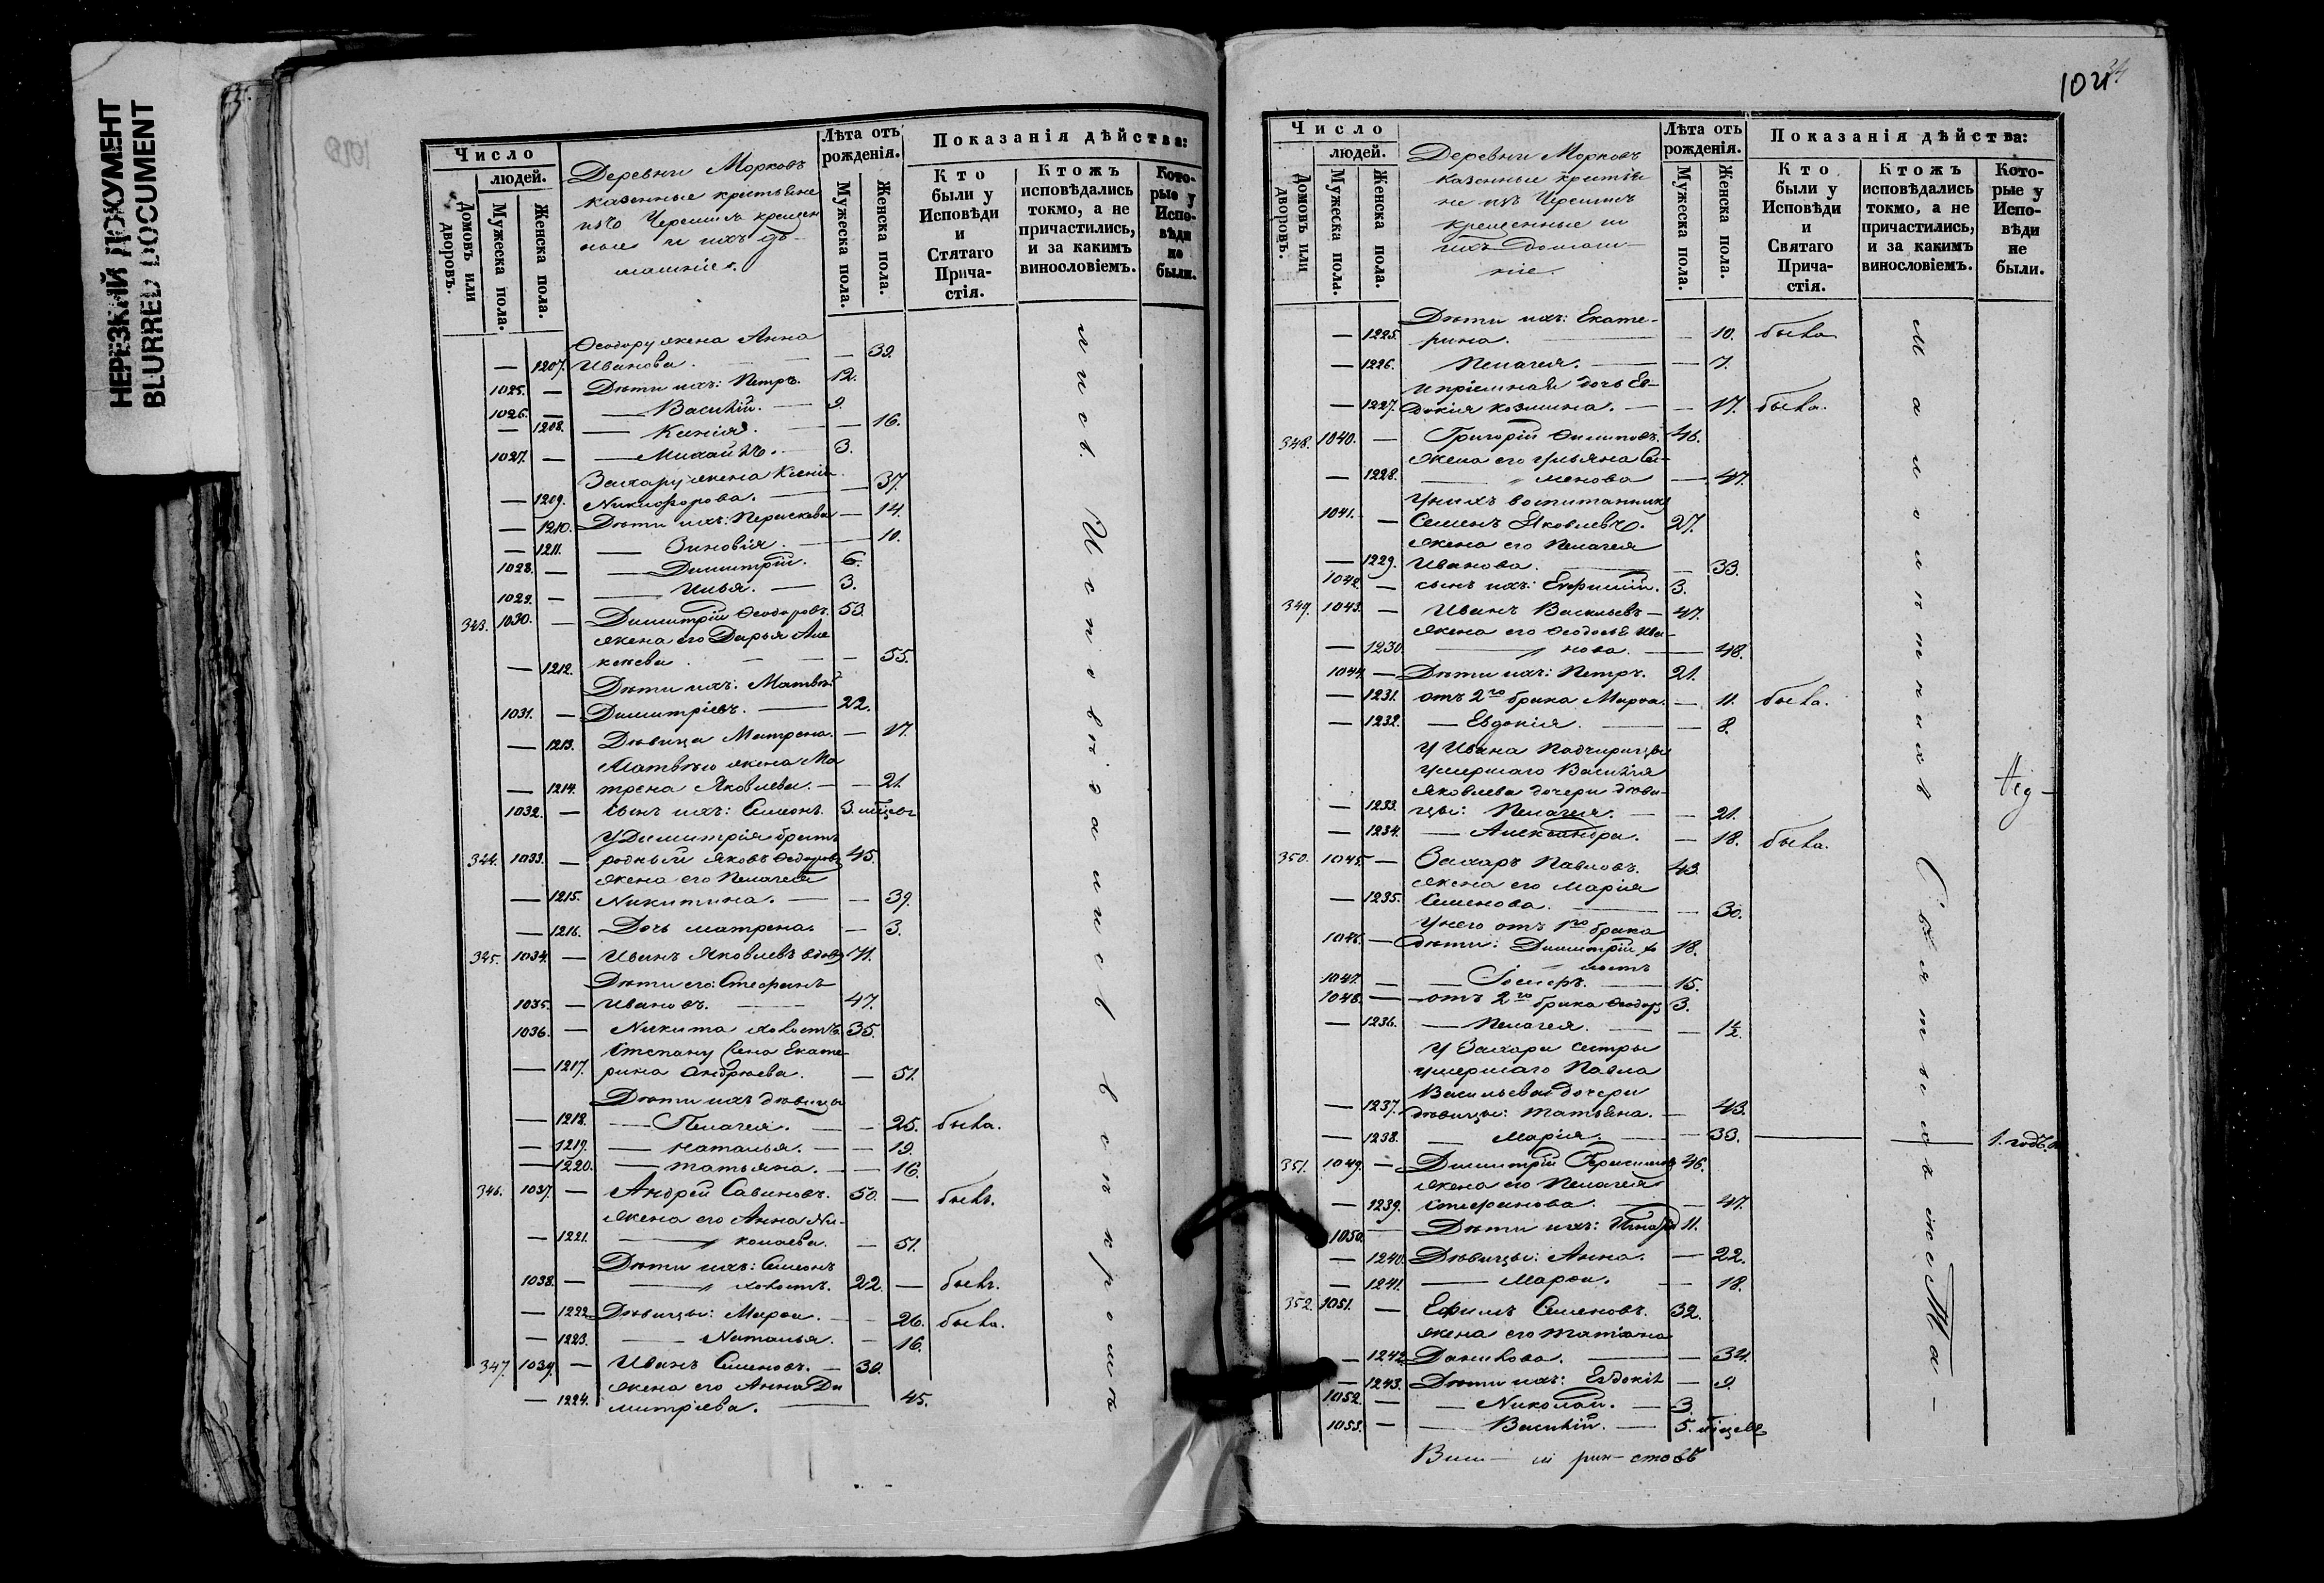 НЕРЕЗКИЙ ДОКУМЕНТ
BLURRED DOCUMENT
Число
людей.
Домовъ или дворовъ.
Мужеска пола.
Женска пола.
Деревни Морковъ
казенные крестьяне
изъ Черемисъ крещен
ные и ихъ до-
машніе.
Лѣта отъ рожденія.
Мужеска пола.
Женска пола.
Показанія дѣйства:
Кто были у Исповѣди и Стятаго Прича-стія.
Ктожъ исповѣдались токмо, а не причастились, и за какимъ винословіемъ.
Кото-рые у Испо-вѣди не были.
Ѳеодору жена Анна
— 1207. Иванова. — 39.
1025. — Дѣти ихъ: Петръ. 12.
1026. — Василій. — 9.
— 1208. Ксенія. — 16.
1027. — Михаилъ. — 3.
Захару жена Ксенія
— 1209. Никифорова. — 37.
— 1210. Дѣти ихъ: Параскева — 14.
— 1211. Зиновія. — 10.
1028. — Димитрій. 6.
1029. — Илья. — 3.
343. 1030. — Димитрій Ѳеодоровъ. 53.
жена его Дарья Але
— 1212. ксѣева. — 55.
Дѣти ихъ: Матвѣй
1031. — Димитріевъ. — 22.
— 1213. Дѣвица Матрена. — 17.
Матвѣю жена Ма
— 1214. трена Яковлева. — 21.
1032. — сынъ ихъ: Симеонъ. 3. мѣсцовъ
У Димитрія братъ
344. 1033. — родный Яковъ Ѳедоровъ 45.
жена его Пелагея
— 1215. Никитина. — 39.
— 1216. Дочь Матрена. — 3.
345. 1034. — Иванъ Яковлевъ вдовъ 71.
Дѣти его: Стефанъ
1035. — Ивановъ. — 47.
1036. — Никита холостъ 35.
Степану жена Екате-
— 1217. рина Андреева. — 51.
Дѣти ихъ дѣвицы
— 1218. — Пелагея. — 25. была.
— 1219. — Наталья. — 19.
— 1220. — Татьяна. — 16.
346. 1037. — Андрей Савиновъ. 50. — былъ.
жена его Анна Ни-
— 1221. колаева. — 51.
Дѣти ихъ: Симеонъ
1038. — холостъ. 22. — былъ.
— 1222. Дѣвицы: Марѳа. — 26. была.
— 1223. — Наталья. — 16.
347. 1039. — Иванъ Семеновъ. — 30.
жена его Анна Ди
— 1224. митріева. — 45.
Исповѣдались
1021
34
Число
людей.
Домовъ или дворовъ.
Мужеска пола.
Женска пола.
Деревни Морковъ
казенные крестья
не изъ Черемисъ
крещенные и
ихъ домаш-
ніе.
Лѣта отъ рожденія.
Мужеска пола.
Женска пола.
Показанія дѣйства:
Кто были у Исповѣди и Святаго Прича-стія.
Ктожъ исповѣдались токмо, а не причастились, и за какимъ винословіемъ.
Кото-рые у Испо-вѣди не были.
Дѣти ихъ: Екате-
— 1225. рина. — 10. была
— 1226. Пелагея. — 7.
и пріемная дочь Ев-
— 1227. докія Козмина. — 17. была.
348. 1040. — Григорій Филиповъ. 46.
жена его Ульяна Се-
— 1228. менова — 47.
У нихъ воспитанникъ
1041. — Семенъ Яковлевъ. 27.
жена его Пелагея
— 1229. Иванова. — 33.
1042. — сынъ ихъ: Евфимій. 3.
349. 1043. — Иванъ Васильевъ — 47.
жена его Ѳеодосья Ива-
— 1230. нова. — 48.
1044. — Дѣти ихъ: Петръ. 21.
— 1231. отъ 2го брака Марѳа. — 11. была.
— 1232. — Евдокія. — 8.
У Ивана Падчирицы
умершаго Василія
Яковлева дочери дѣви-
— 1233. цы: Пелагея. — 21.
— 1234. — Александра. — 18. была.
350. 1045. — Захаръ Павловъ. 43.
жена его Марія
— 1235. Семенова. — 30.
У него отъ 1го брака
1046. — дѣти: Димитрій хо 18.
лостъ
1047. — Іосифъ. — 15.
1048. — отъ 2го брака Ѳеодоръ 3.
— 1236. — Пелагея. — 1½.
У Захара сестры
умершаго Павла
Васильева дочери
— 1237. дѣвицы: Татьяна. — 43.
— 1238. — Марія. — 33. — 1. годъ.
351. 1049. — Димитрій Герасимовъ 46.
жена его Пелагея
— 1239. Стефанова. — 47.
1050. — Дѣти ихъ: 11.
— 1240. Дѣвицы: Анна. — 22.
— 1241. — Марѳа. — 18.
352. 1051. — Ефимъ Семеновъ. 32.
жена его Татіана
— 1242. Данилова. — 34.
— 1243. Дѣти ихъ: Евдокія — 9.
1052. — Николай. — 3.
1053. — Василій. — 5. мѣсцевъ
Святыхъ Та-